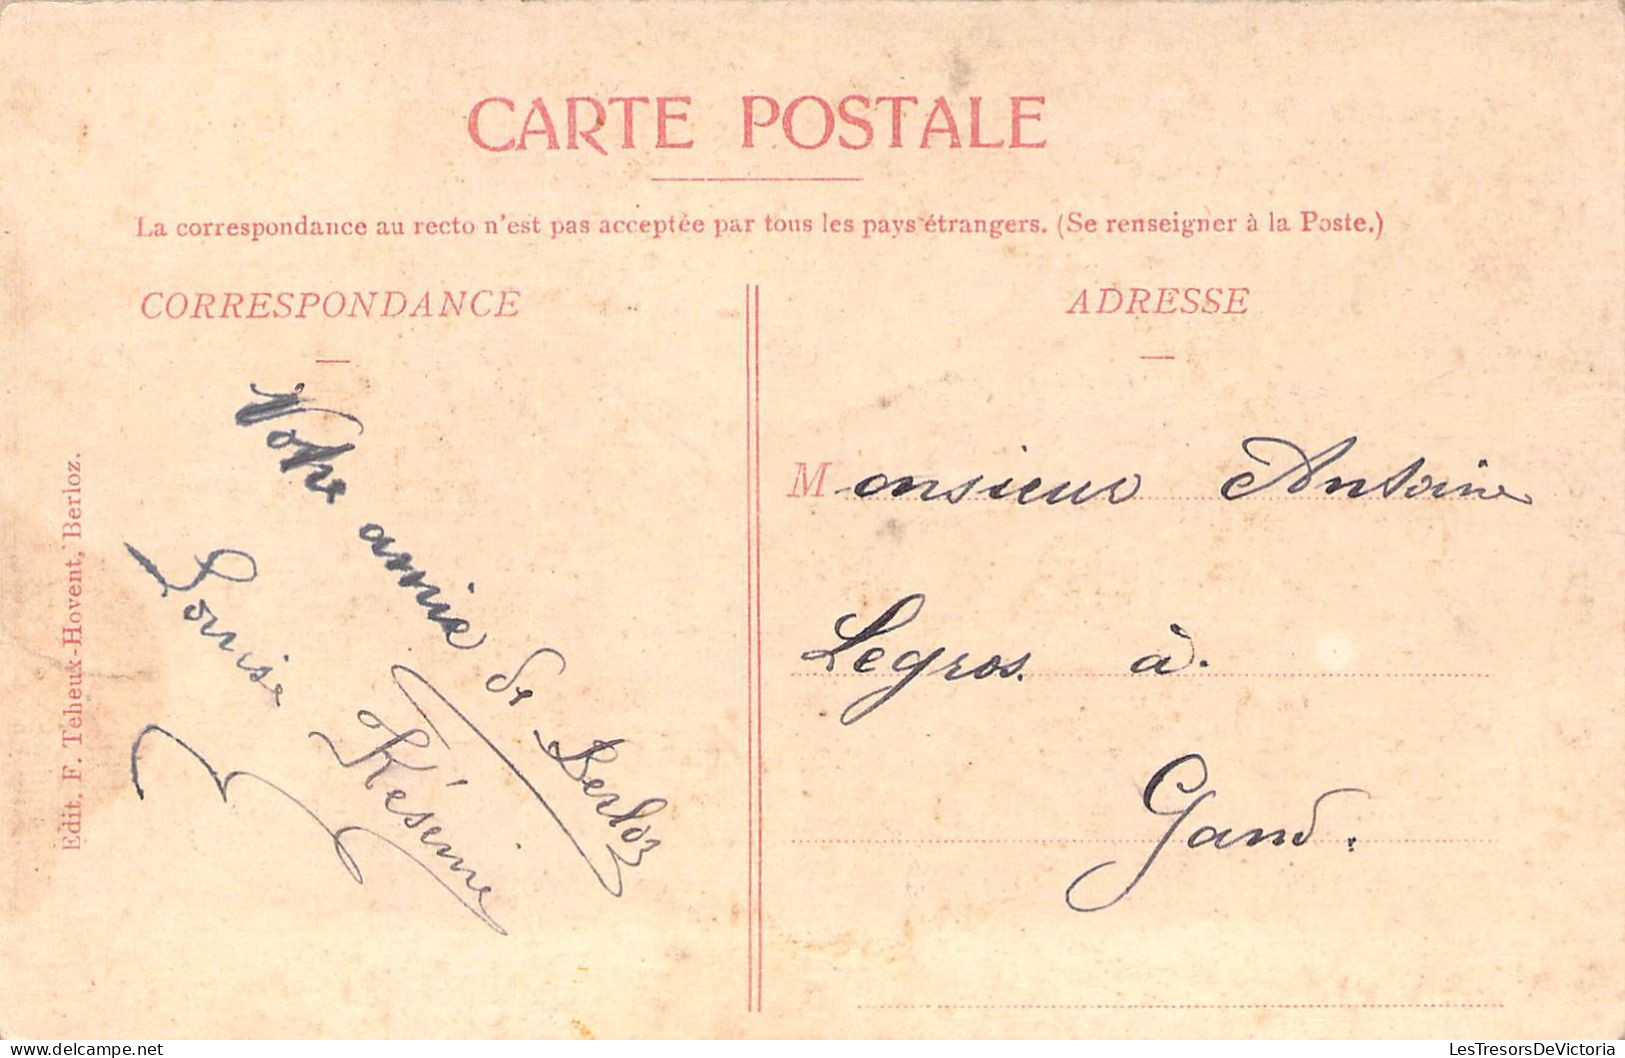 CARTE POSTALE
La correspondance au recto n'est pas acceptée par tous les pays étrangers. (Se renseigner à la Poste.)
CORRESPONDANCE
Votre amie de Berloz
Louise Késeine
Edit. F. Teheux-Hovent, Berloz.
ADRESSE
Monsieur Antoine
Legros. à.
Gand.
LesTresorsDeVictoria